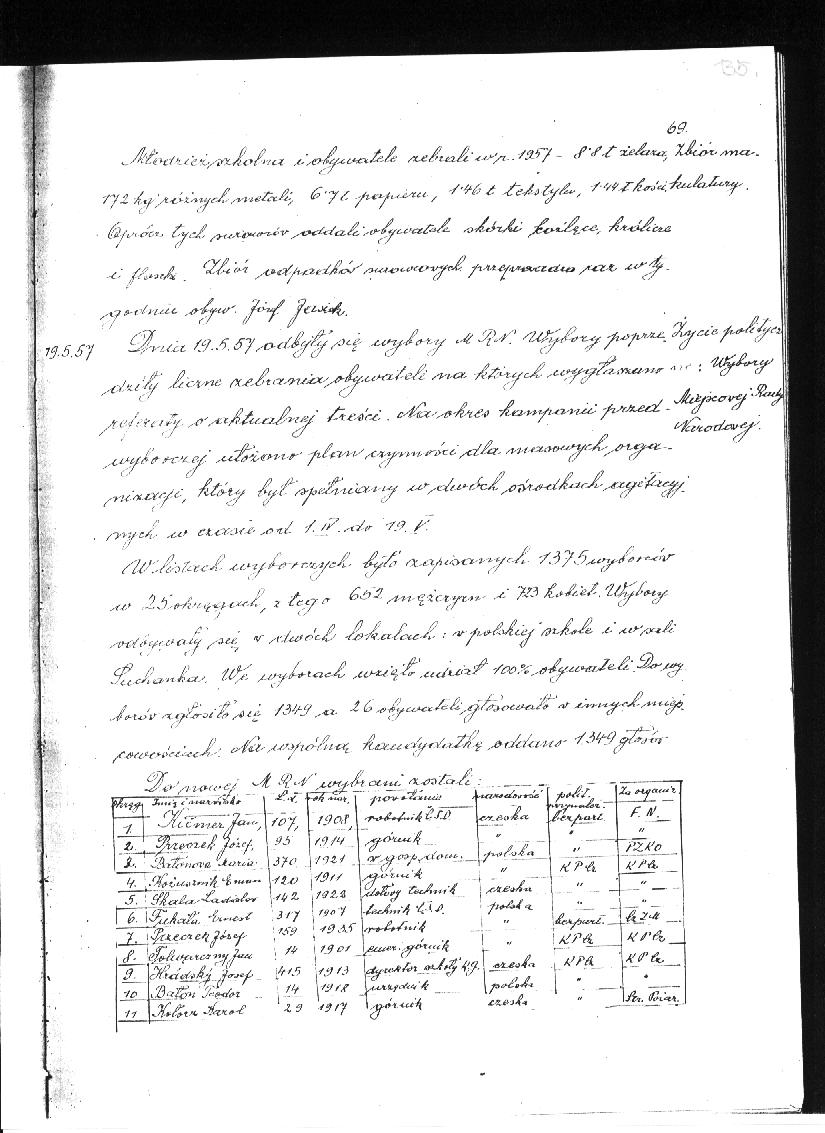 135.
69.
Młodzież szkolna i obywatele zebrali w r. 1957 - 8'8 t żelaza, Zbiór ma-
172 kg różnych metali, 6'7 t papieru, 1'46 t tekstylu, 1'44 t kości, kulatury.
Oprócz tych surowców oddali obywatele skórki koźlęce, królicze
i flaszki. Zbiór odpadków surowcowych przeprowadza raz w ty-
godniu obyw. Józef
19.5.57 Dnia 19.5.57 odbyły się wybory M R N. Wybory poprze- Życie politycz
dziły liczne zebrania obywateli na których wygłaszano ne: Wybory
referaty o aktualnej treści. Na okres kampanii przed- Miejscowej Rady
wyborczej ułożono plan czynności dla masowych orga- Narodowej.
nizacji, który był spełniany w dwóch ośrodkach agitacyj-
nych w czasie od 1. IV. do 19. V.
W listach wyborczych było zapisanych 1375 wyborców
w 25 okręgach, z tego 652 mężczyzn i 723 kobiet. Wybory
odbywały się w dwóch lokalach: w polskiej szkole i w sali
Suchanka. We wyborach wzięło udział 100% obywateli. Do wy
borów zgłosiło się 1349 a 26 obywateli głosowało w innych miejs-
cowościach. Na wspólną kandydatkę oddano 1349 głosów
Do nowej M R N wybrani zostali:
Okręg Imię i nazwisko L.d. rok nar. powołanie narodowość polit. przynależ. Za organiz.
1. Kičmer Jan, 107, 1908, robotnik ČSD czeska bezpart. F. N.
2. Przeczek Józef, 95 1914 górnik " " "
3. Batonova Maria 370 1921 w gosp. dom. polska " PZKO
4. Kożusznik Eman 120 1911 górnik " KPCz KPCz
5. Skala Ladislav 142 1923 technik czeska " "
6. Tukała Ernest 317 1907 technik ČSD. polska " "
7. Przeczek Józef 159 1935 robotnik " bezpart.
8. Folwarczny Jan 14 1901 emer. górnik " KPCz KPCz
9. Hrádský Josef 415 1913 dyrektor szkoły czeska KPCz KPCz
10 Bátoń Teodor 14 1918 urzędnik polska " "
11 Kolorz Karol 29 1917 górnik czeska " Str. Pożar.